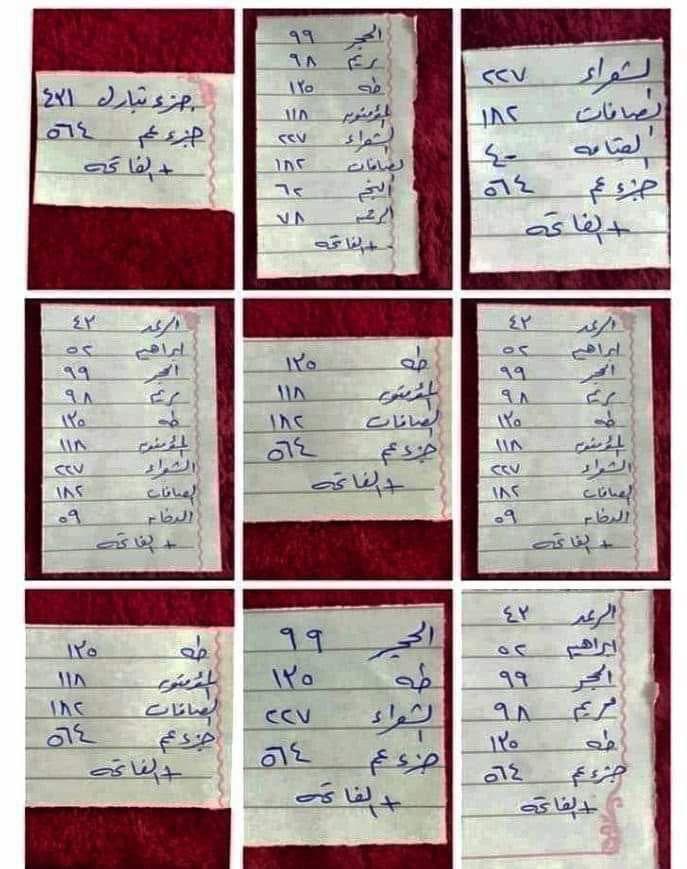 الشعراء ٢٢٧
الصافات ١٨٢
القيامه ٤٠
جزء عم ٥٦٤
+ الفاتحة
الحجر ٩٩
مريم ٩٨
طه ١٣٥
المؤمنون ١١٨
الشعراء ٢٢٧
الصافات ١٨٢
النجم ٦٢
الرحمن ٧٨
+ الفاتحة
جزء تبارك ٤٣١
جزء عم ٥٦٤
+ الفاتحة
الرعد ٤٣
ابراهيم ٥٢
الحجر ٩٩
مريم ٩٨
طه ١٣٥
المؤمنون ١١٨
الشعراء ٢٢٧
الصافات ١٨٢
الدخان ٥٩
+ الفاتحة
طه ١٣٥
المؤمنون ١١٨
الصافات ١٨٢
جزء عم ٥٦٤
+ الفاتحة
الرعد ٤٣
ابراهيم ٥٢
الحجر ٩٩
مريم ٩٨
طه ١٣٥
المؤمنون ١١٨
الشعراء ٢٢٧
الصافات ١٨٢
الدخان ٥٩
+ الفاتحة
الرعد ٤٣
ابراهيم ٥٢
الحجر ٩٩
مريم ٩٨
طه ١٣٥
جزء عم ٥٦٤
+ الفاتحة
الحجر ٩٩
طه ١٣٥
الشعراء ٢٢٧
جزء عم ٥٦٤
+ الفاتحة
طه ١٣٥
المؤمنون ١١٨
الصافات ١٨٢
جزء عم ٥٦٤
+ الفاتحة